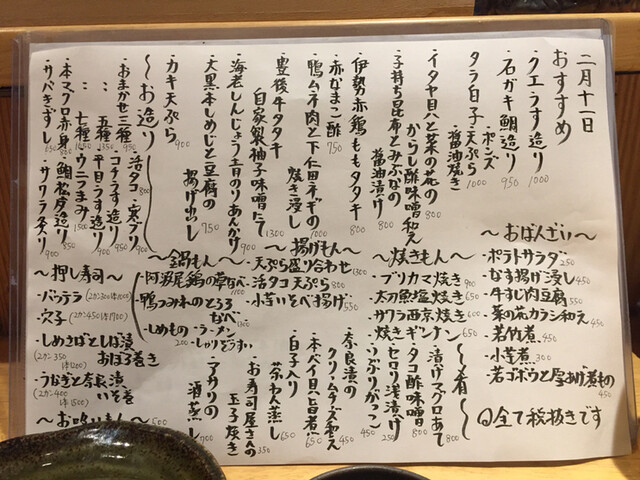 二月十一日
おすすめ
・クエうす造り 1000
・石ガキ鯛造り 950
・タラ白子 天ぷら
・ポンズ
・醤油焼き 1000
・イタヤ貝と菜の花の
からし酢味噌和え 800
・子持ち昆布とみぶなの
醤油漬け 800
・伊勢赤鶏ももタタキ 800
・赤なまこ酢 750
・鴨ムネ肉と下仁田ネギの
焼き浸し 1000
・豊後牛タタキ
自家製柚子味噌にて 1300
・海老しんじょう青のりあんかけ 900
・大黒本しめじと豆腐の
揚げ出し 750
・カキ天ぷら 900
〜お造り〜
・おまかせ三種 950
〃 五種 1350
〃 七種 1650
・本マグロ赤身 850
・サバきずし 650
・活タコ 800
・寒ブリ 900
・コチうす造り 950
・平目うす造り 950
・ウニつまみ 1500
・鯛松皮造り 850
・サワラ炙り 900
〜おばんざい〜
・ポテトサラダ 250
・なす揚げ浸し 450
・牛すじ肉豆腐 550
・菜の花カラシ和え 450
・若竹煮 450
・小芋煮 300
・若ゴボウと厚あげ煮もの 450
◎全て税抜きです
〜焼きもん〜
・ブリカマ焼き 900
・太刀魚塩焼き 650
・サワラ西京焼き 600
・焼きギンナン 450
〜肴〜
・漬けマグロあて 450
・タコ酢味噌 800
・セロリ浅漬け 250
・いぶりがっこ 450
・奈良漬の
クリームチーズ和え 450
・本バイ貝旨煮 650
・白子入り
茶わん蒸し 650
・お寿司屋さんの
玉子焼き 350
・アサリの
酒蒸し 700
〜揚げもん〜
・天ぷら盛り合わせ 1300
・活タコ天ぷら 800
・小芋いそべ揚げ 550
〜鍋もん〜
・阿波尾鶏の草なべ
・鴨つみれのとろろ
なべ
・しめもの ・ラーメン 200
・しゃりぞうすい
〜押し寿司〜
・バッテラ
・穴子
・しめさばとしば漬
おぼろ巻き
・うなぎと奈良漬
いそ巻
〜お吸いもん〜 500